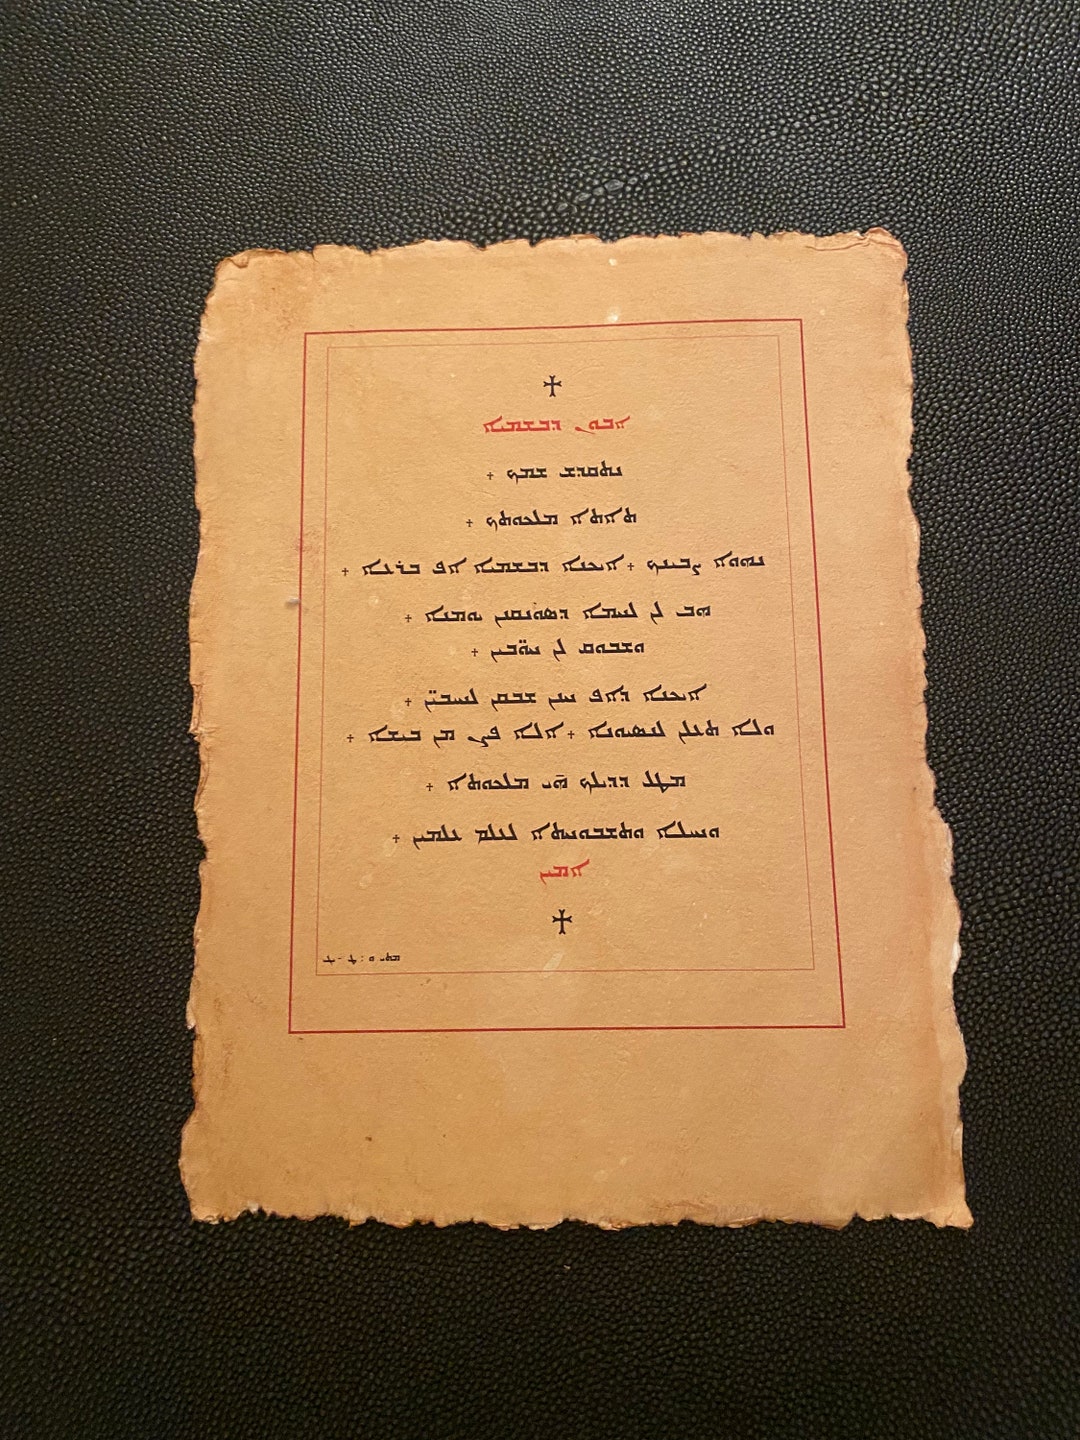 ܐܒܘܢ ܕܒܫܡܝܐ
ܢܬܩܕܫ ܫܡܟ +
ܬܐܬܐ ܡܠܟܘܬܟ +
ܢܗܘܐ ܨܒܝܢܟ + ܐܝܟܢܐ ܕܒܫܡܝܐ ܐܦ ܒܪܥܐ +
ܗܒ ܠܢ ܠܚܡܐ ܕܣܘܢܩܢܢ ܝܘܡܢܐ +
ܘܫܒܘܩ ܠܢ ܚܘ̈ܒܝܢ +
ܐܝܟܢܐ ܕܐܦ ܚܢܢ ܫܒܩܢ ܠܚܝܒܝ̈ܢ +
ܘܠܐ ܬܥܠܢ ܠܢܣܝܘܢܐ + ܐܠܐ ܦܨܢ ܡܢ ܒܝܫܐ +
ܡܛܠ ܕܕܝܠܟ ܗ̄ܝ ܡܠܟܘܬܐ +
ܘܚܝܠܐ ܘܬܫܒܘܚܬܐ ܠܥܠܡ ܥܠܡܝܢ +
ܐܡܝܢ
ܡܬܝ ܘ : ܛ -